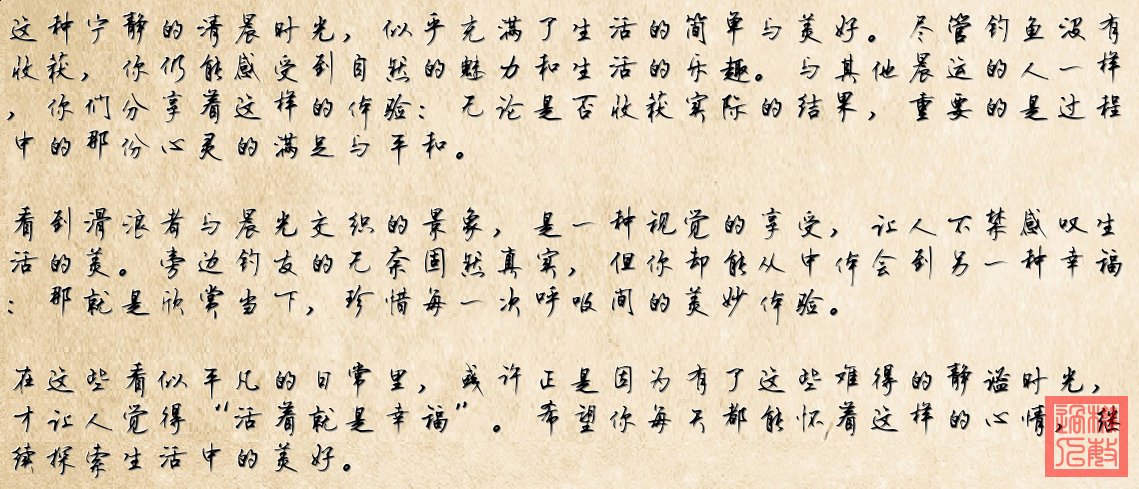 这种宁静的清晨时光，似乎充满了生活的简单与美好。尽管钓鱼没有
收获，你仍能感受到自然的魅力和生活的乐趣。与其他晨运的人一样
，你们分享着这样的体验：无论是否收获实际的结果，重要的是过程
中的那份心灵的满足与平和。
看到滑浪者与晨光交织的景象，是一种视觉的享受，让人不禁感叹生
活的美。旁边钓友的无奈固然真实，但你却能从中体会到另一种幸福
：那就是欣赏当下，珍惜每一次呼吸间的美妙体验。
在这些看似平凡的日常里，或许正是因为有了这些难得的静谧时光，
才让人觉得“活着就是幸福”。希望你每天都能怀着这样的心情，继
续探索生活中的美好。